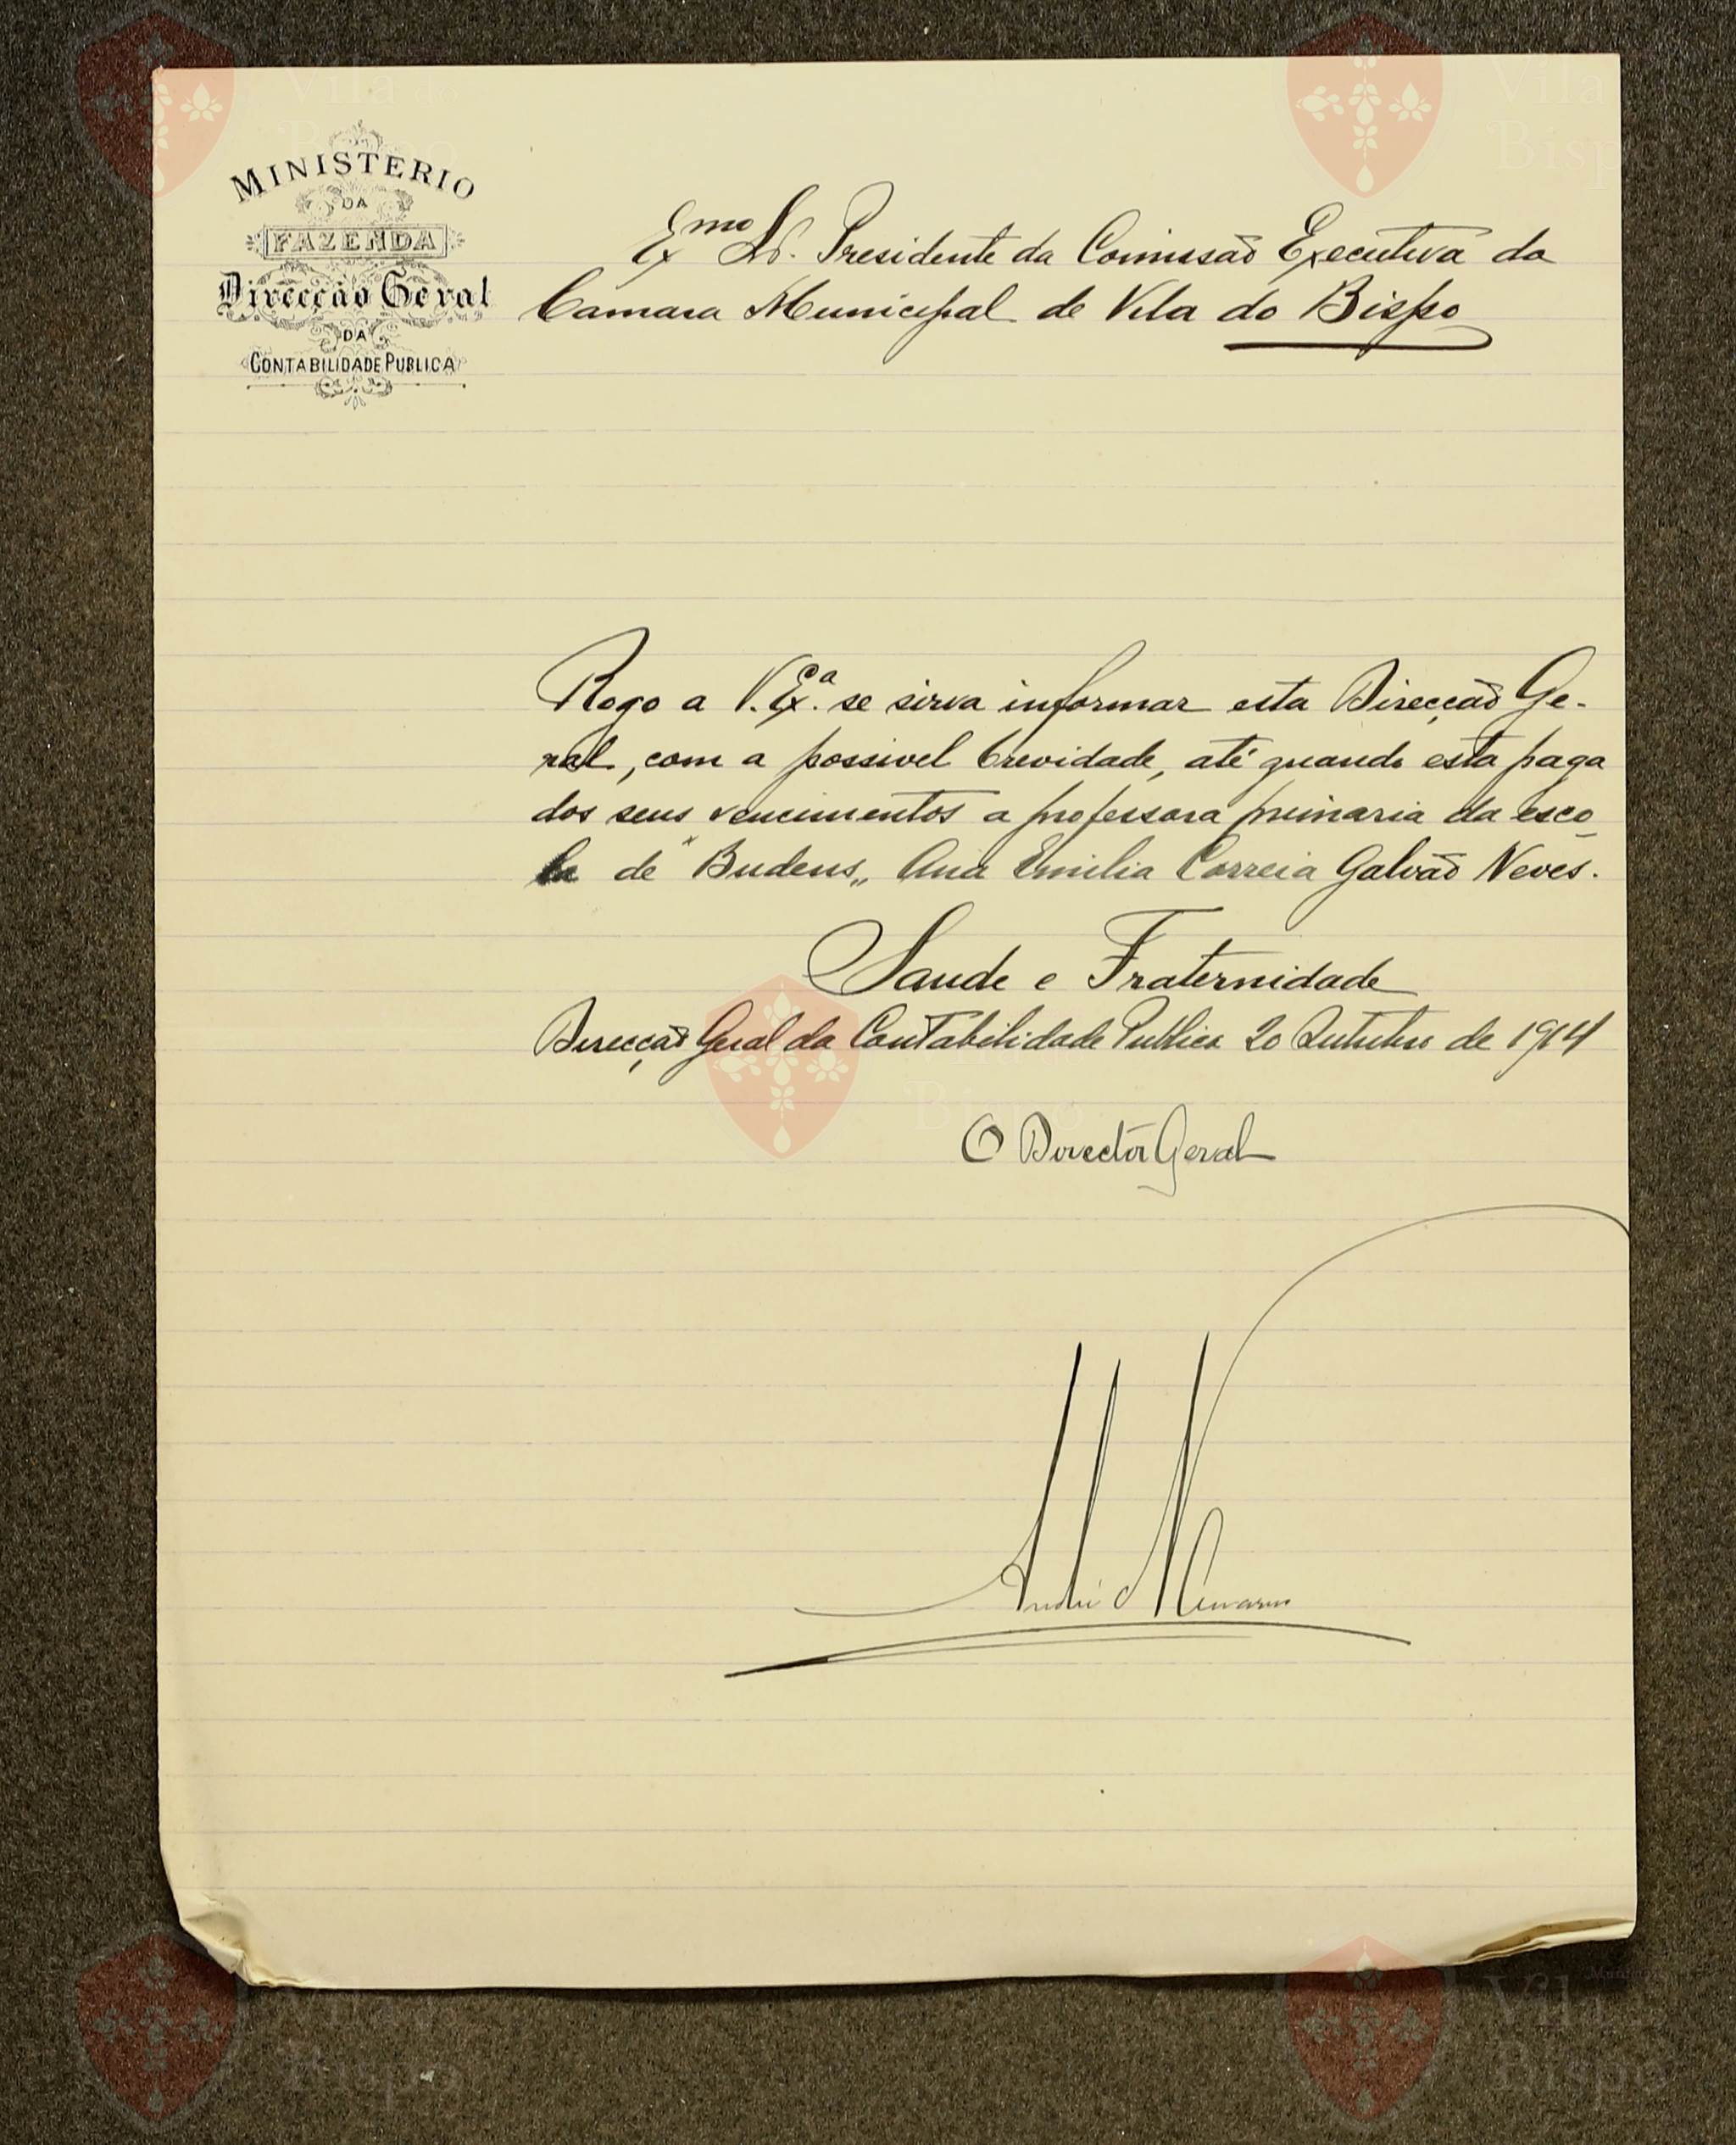 MINISTERIO
DA
FAZENDA
Direcção Geral
DA
CONTABILIDADE PUBLICA
Exmo Sr. Presidente da Comissão Executiva da
Camara Municipal de Vila do Bispo
Rogo a V. Exª. se sirva informar esta Direcção Ge-
ral, com a possivel brevidade, até quando esta paga
dos seus vencimentos a professora primaria da esco-
la de "Budens„ Ana Emilia Correia Galvão Neves.
Saude e Fraternidade
Direcção Geral da Contabilidade Publica 20 Outubro de 1914
O Director Geral
André Navarro
Vila do
Bispo
Vila
Bispo
Bispo
Vila do
Bispo
Vila do
Bispo